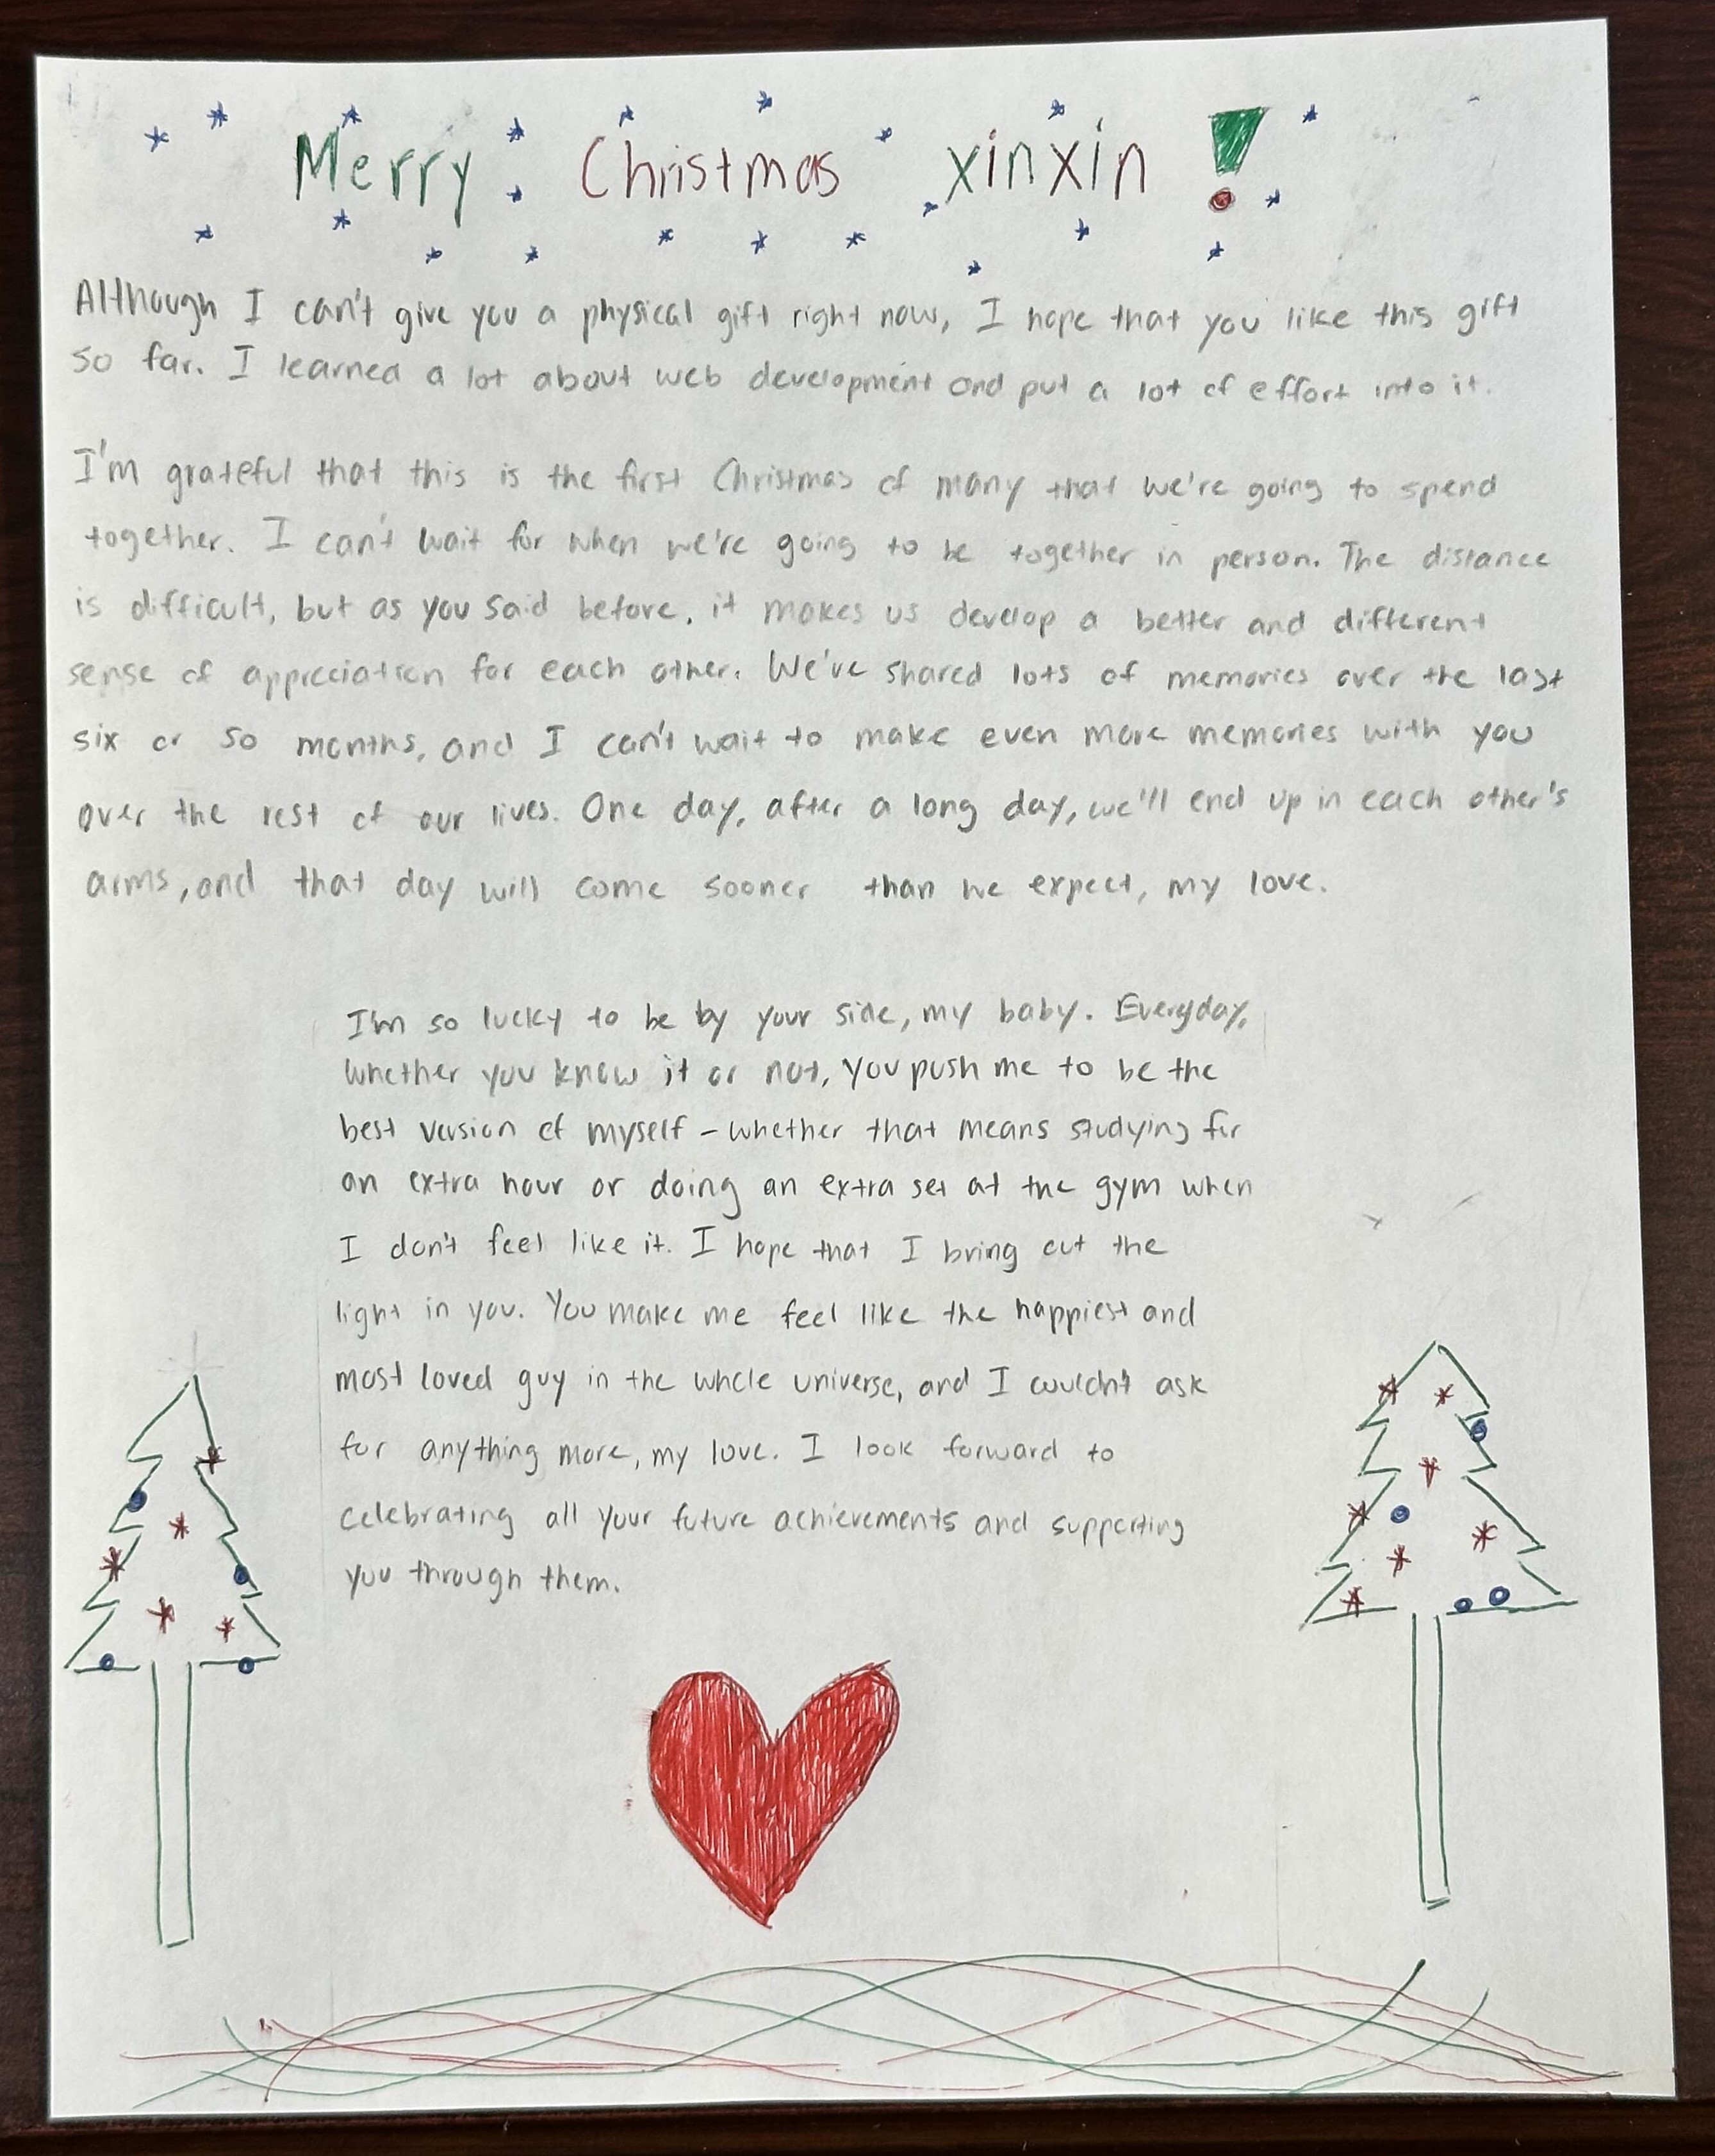 Merry Christmas xinxin !
Although I can't give you a physical gift right now, I hope that you like this gift
so far. I learned a lot about web development and put a lot of effort into it.
I'm grateful that this is the first Christmas of many that we're going to spend
together. I can't wait for when we're going to be together in person. The distance
is difficult, but as you said before, it makes us develop a better and different
sense of appreciation for each other. We've shared lots of memories over the last
six or so months, and I can't wait to make even more memories with you
over the rest of our lives. One day, after a long day, we'll end up in each other's
arms, and that day will come sooner than we expect, my love.
I'm so lucky to be by your side, my baby. Everyday,
whether you know it or not, you push me to be the
best version of myself - whether that means studying for
an extra hour or doing an extra set at the gym when
I don't feel like it. I hope that I bring out the
light in you. You make me feel like the happiest and
most loved guy in the whole universe, and I couldn't ask
for anything more, my love. I look forward to
celebrating all your future achievements and supporting
you through them.